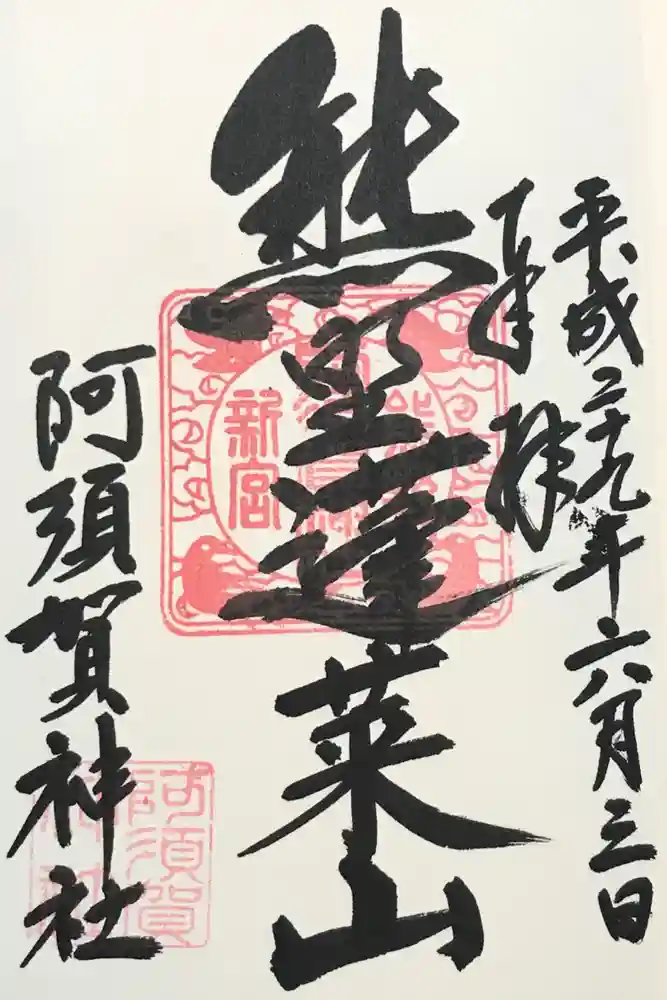 平成二十九年六月三日
奉拝
熊野蓬莱山
新宮
阿須賀神社
阿須賀
神社